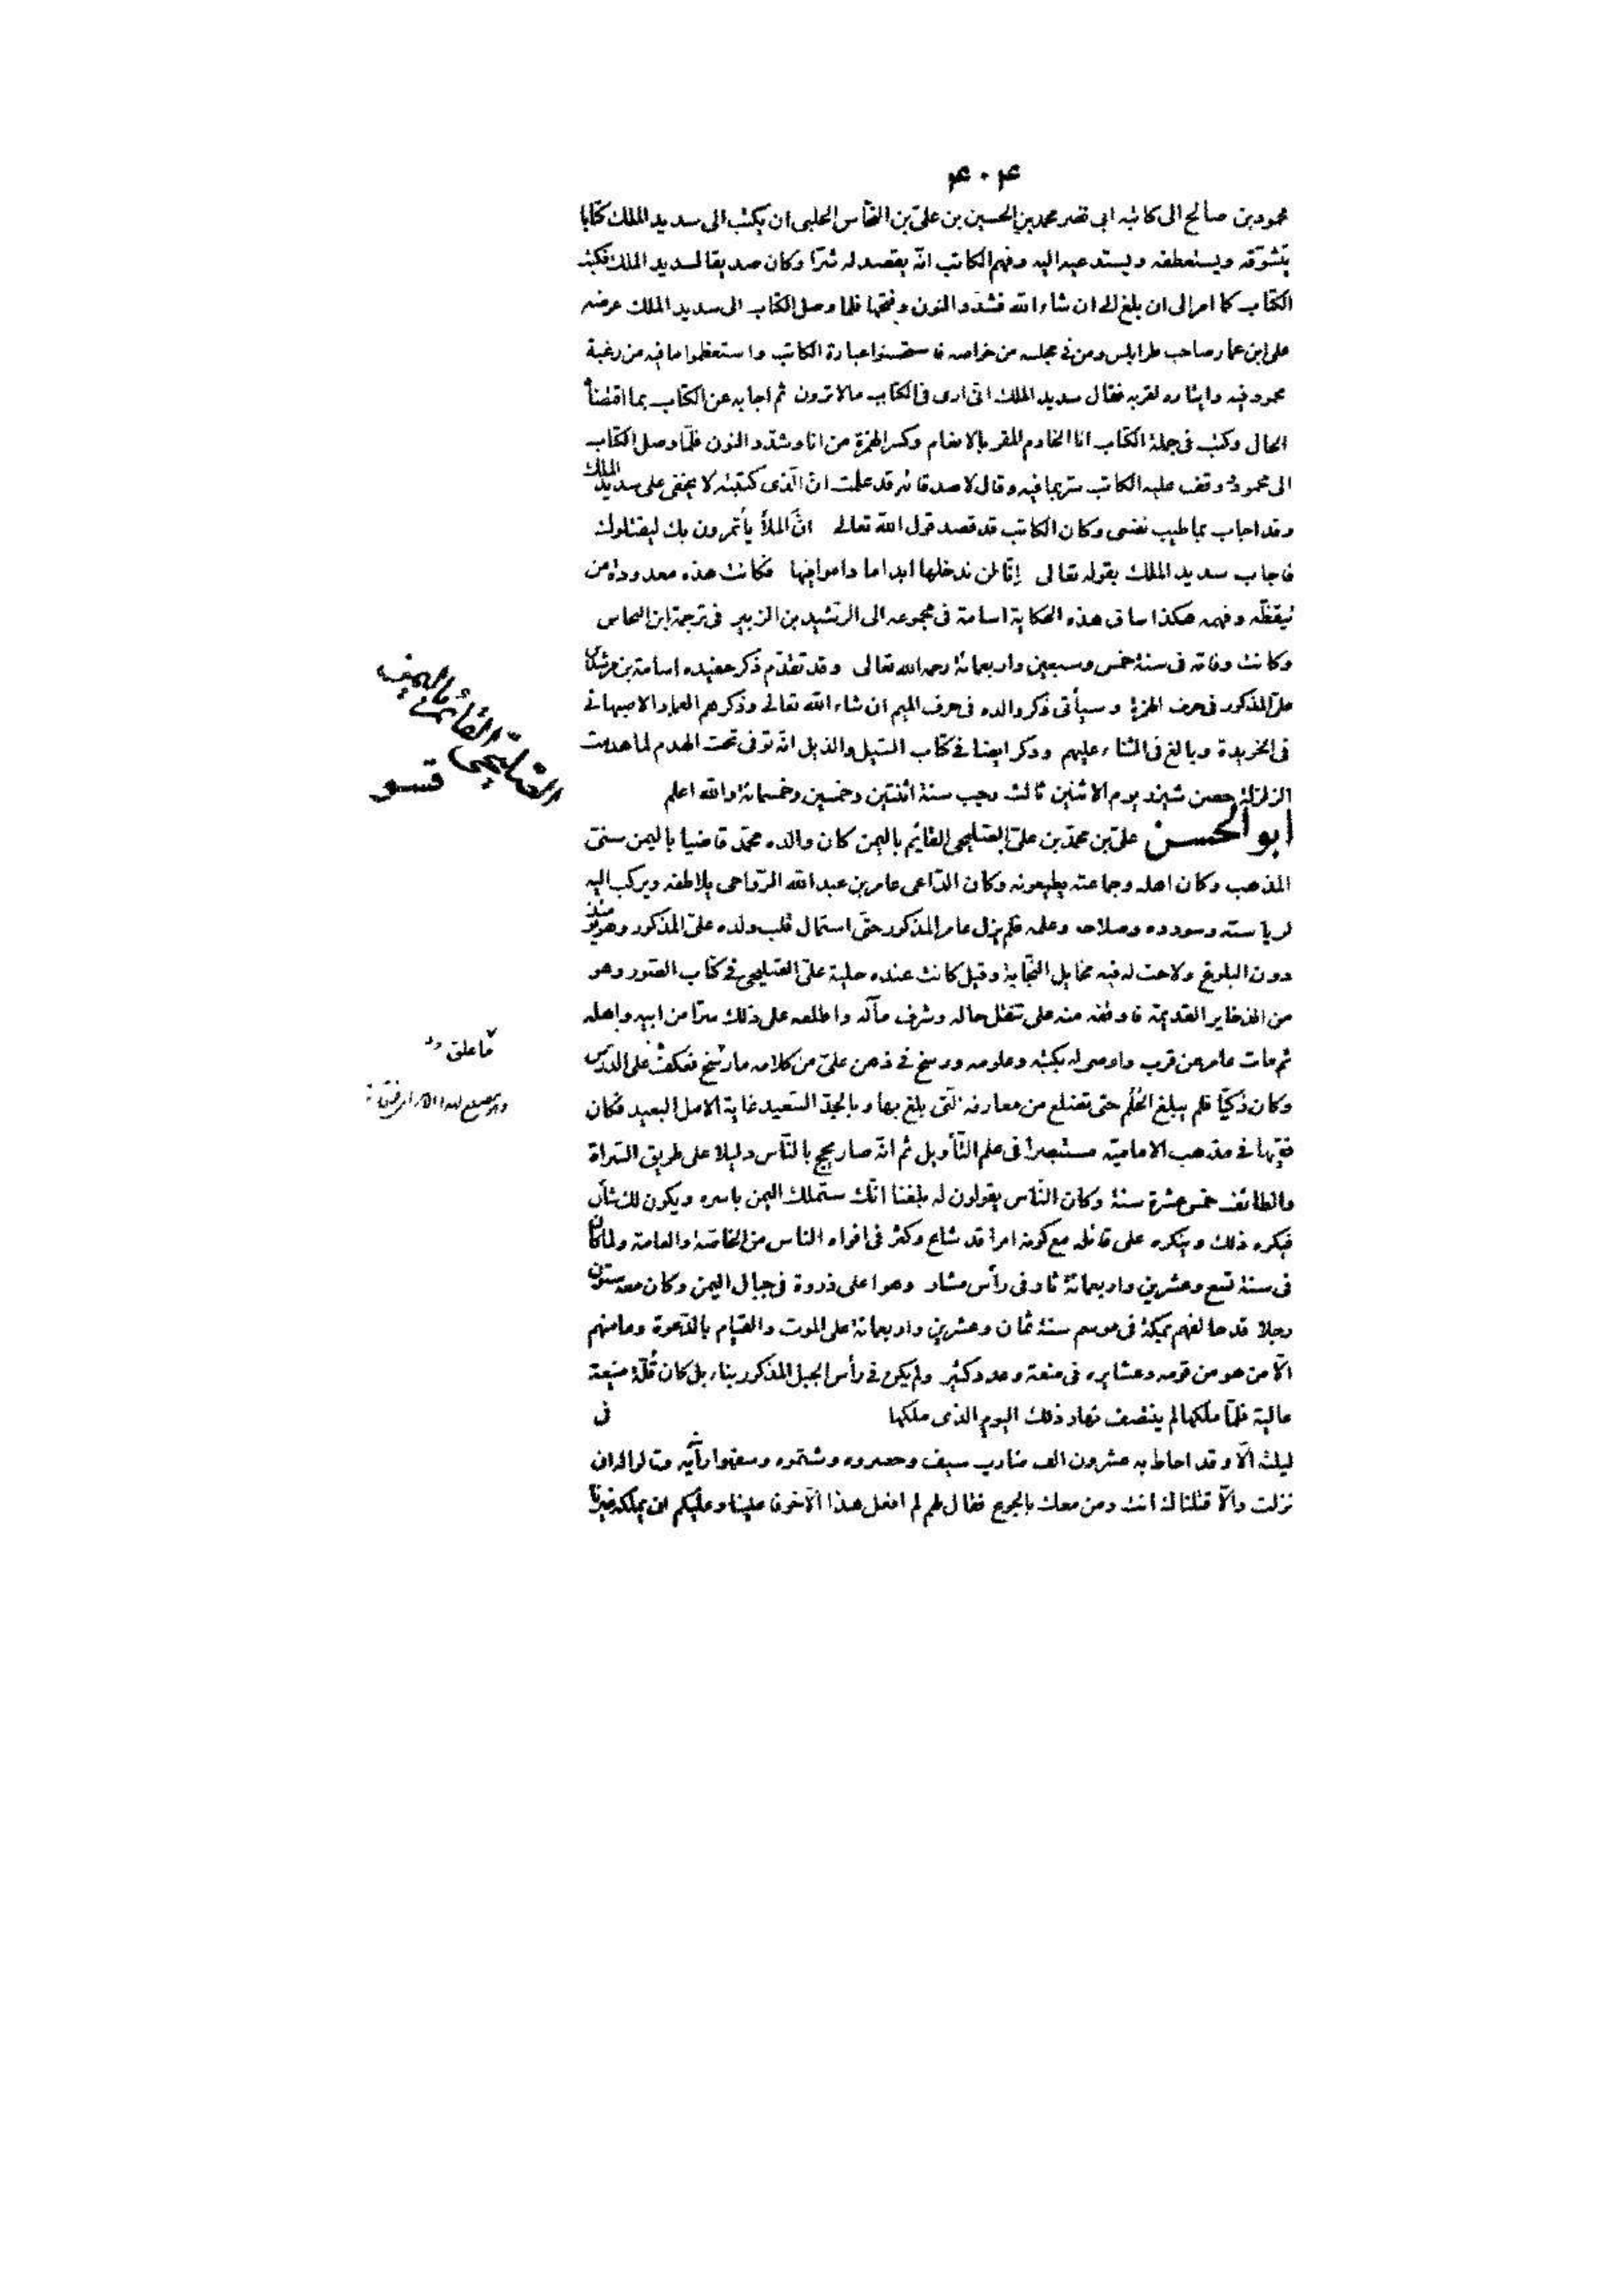 ٤٠٤
محمود بن صالح الى كاتبه ابى نصر محمد بن الحسين بن علىّ بن النحّاس الحلبى ان يكتب الى سديد الملك كتابا
يتشوّقه ويستعطفه ويستدعيه اليه وفهم الكاتب انّه يقصد له شرّا وكان صديقا لسديد الملك فكتب
الكتاب كما امر الى ان بلغ الى ان شاء الله فشدّد النون وفتحها فلما وصل الكتاب الى سديد الملك عرضه
على ابن عمار صاحب طرابلس ومن فى مجلسه من خواصه فاستحسنوا عبارة الكاتب واستعظموا ما فيه من رغبة
محمود فيه وايثاره لقربه فقال سديد الملك انّى ارى فى الكتاب مالا ترون ثم اجابه عن الكتاب بما اقتضاه
الحال وكتب فى جملة الكتاب انا الخادم المقر بالانعام وكسر الهمزة من انا وشدّد النون فلمّا وصل الكتاب
الى محمود ووقف عليه الكاتب سرّ بما فيه وقال لاصدقائه قد علمت انّ الّذى كتبته لا يخفى على سديد الملك
وقد اجاب بما طيب نفسى وكان الكاتب قد قصد قول الله تعالى انّ الملأ يأتمرون بك ليقتلوك
فاجاب سديد الملك بقوله تعالى إنّا لن ندخلها ابدا ما داموا فيها فكانت هذه معدودة من
تيقظّه وفهمه هكذا ساق هذه الحكاية اسامة فى مجموعه الى الرّشيد بن الزبير فى ترجمة ابن النحاس
وكانت وفاته فى سنة خمس وسبعين واربعمائة رحمه الله تعالى وقد تقدّم ذكر حفيده اسامة بن مرشد بن
علىّ المذكور فى حرف الهمزة وسيأتى ذكر والده فى حرف الميم ان شاء الله تعالى وذكرهم العماد الاصبهانى
فى الخريدة وبالغ فى الثناء عليهم وذكر ايضا فى كتاب السّيل والذيل انّه توفى تحت الهدم لما هدمت
الزلزلة حصن شيزر يوم الاثنين ثالث رجب سنة اثنتين وخمسين وخمسمائة والله اعلم
ابو الحسن علىّ بن محمّد بن علىّ الصّليحى القائم باليمن كان والده محمّد قاضيا باليمن سنىّ
المذهب وكان اهله وجماعته يطيعونه وكان الدّاعى عامر بن عبد الله الزّواحى يلاطفه ويركب اليه
لرياسته وسودده وصلاحه وعلمه فلم يزل عامر المذكور حتّى استمال قلب ولده علىّ المذكور وهو يومئذ
دون البلوغ ولاحت له فيه مخايل النّجابة وقيل كانت عنده حلية علىّ الصّليحى فى كتاب الصّور وهو
من الذخاير القديمة فاوقفه منه على تنقل حاله وشرف مآله واطلعه على ذلك سرّا من ابيه واهله
ثم مات عامر عن قرب واوصى له بكتبه وعلومه ورسخ فى ذهن علىّ من كلامه ما رسخ فعكف على الدرس
وكان ذكيّا فلم يبلغ الحُلُم حتى تضلع من معارفه الّتى بلغ بها وبالجدّ السّعيد غاية الامل البعيد فكان
فقيها فى مذهب الاماميّه مستبصرا فى علم التّأويل ثم انّه صار يحج بالنّاس دليلا على طريق السّراة
والطائف خمس عشرة سنة وكان النّاس يقولون له بلغنا انّك ستملك اليمن باسره ويكون لك شأن
فيكره ذلك وينكره على قائله مع كونه امرا قد شاع وكثر فى افواه الناس من الخاصّة والعامة ولما كان
فى سنة تسع وعشرين واربعمائة ثار فى رأس مشار وهو اعلى ذروة فى جبال اليمن وكان معه ستون
رجلا قد حالفهم بمكة فى موسم سنة ثمان وعشرين واربعمائة على الموت والقيام بالدّعوة وما منهم
الّا من هو من قومه وعشايره فى منعة وعدد كثير ولم يكن فى رأس الجبل المذكور بناء بل كان قُلّة منيعة
عالية فلمّا ملكها لم ينتصف نهار ذلك اليوم الذى ملكها فى
ليلته الّا وقد احاط به عشرون الف ضارب سيف وحصروه وشتموه وسفهوا رأيه وقالوا له ان
نزلت والّا قتلناك انت ومن معك بالجوع فقال لهم لم افعل هذا الّا خوفا علينا وعليكم ان يملكه غيرنا
الصّليحىّ القائم باليمن
ما علق